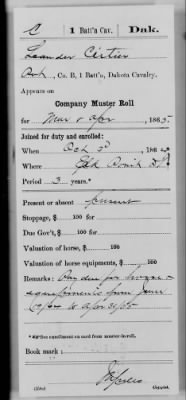 C | 1 Batt'n Cav. | Dak.
Leander Certier
Co. B, 1 Batt'n, Dakota Cavalry.
Appears on
Company Muster Roll
for Mar & Apr, 1865.
Joined for duty and enrolled:
When Oct 3, 186
Where D.T.
Period 3 years.*
Present or absent present
Stoppage, $ 100 for
Due Gov't, $ 100 for
Valuation of horse, $ 100
Valuation of horse equipments, $ 100
Remarks: Pay due for horse &
equipments from June
to Apr 30/65
Book mark: